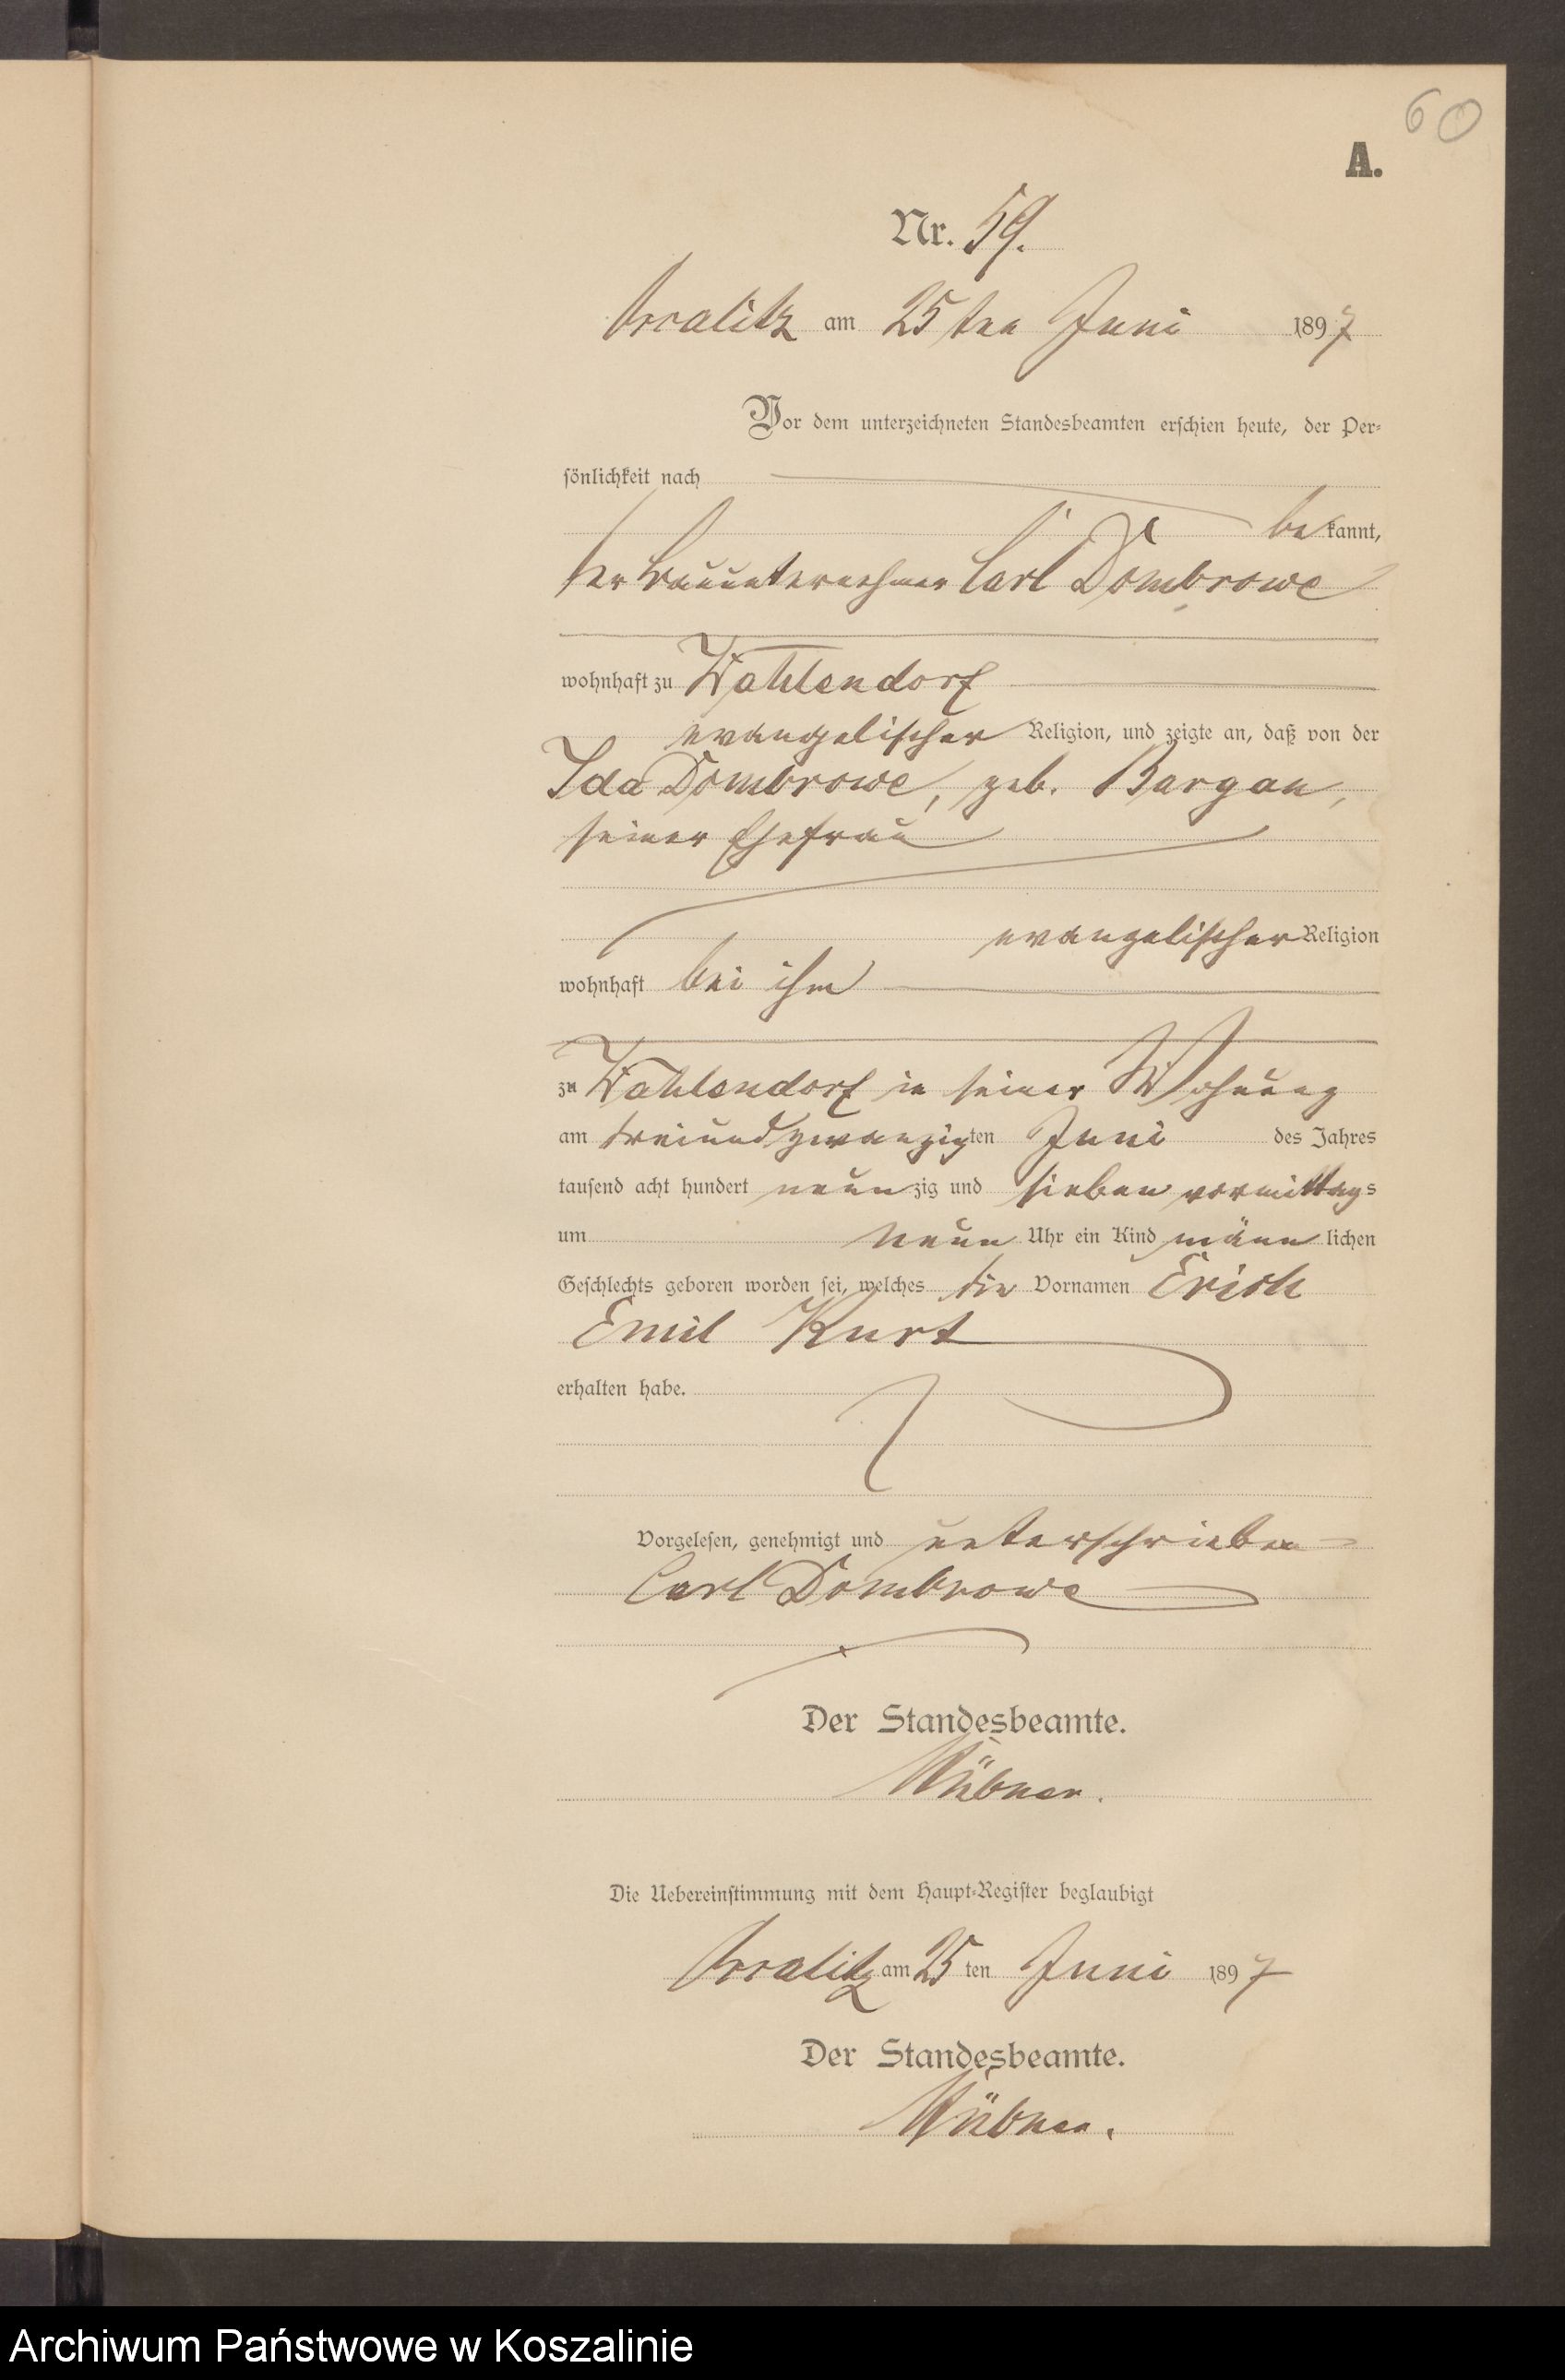 60
A.
Nr. 59.
am 25ten Juni 1897
Vor dem unterzeichneten Standesbeamten erschien heute, der Per-
sönlichkeit nach
bekannt,
der Bauunternehmer Carl Dombrowe
wohnhaft zu Wahlendorf
evangelischer Religion, und zeigte an, daß von der
Ida Dombrowe, geb. Bargan,
seiner Ehefrau
evangelischer Religion
wohnhaft bei ihm
zu Wahlendorf in seiner Wohnung
am dreiundzwanzigten Juni des Jahres
tausend acht hundert neunzig und sieben vormittags
um neun Uhr ein Kind männlichen
Geschlechts geboren worden sei, welches die Vornamen Erich
Emil Kurt
erhalten habe.
Vorgelesen, genehmigt und unterschrieben
Carl Dombrowe
Der Standesbeamte.
Die Uebereinstimmung mit dem Haupt-Register beglaubigt
am 25ten Juni 1897
Der Standesbeamte.
Archiwum Państwowe w Koszalinie